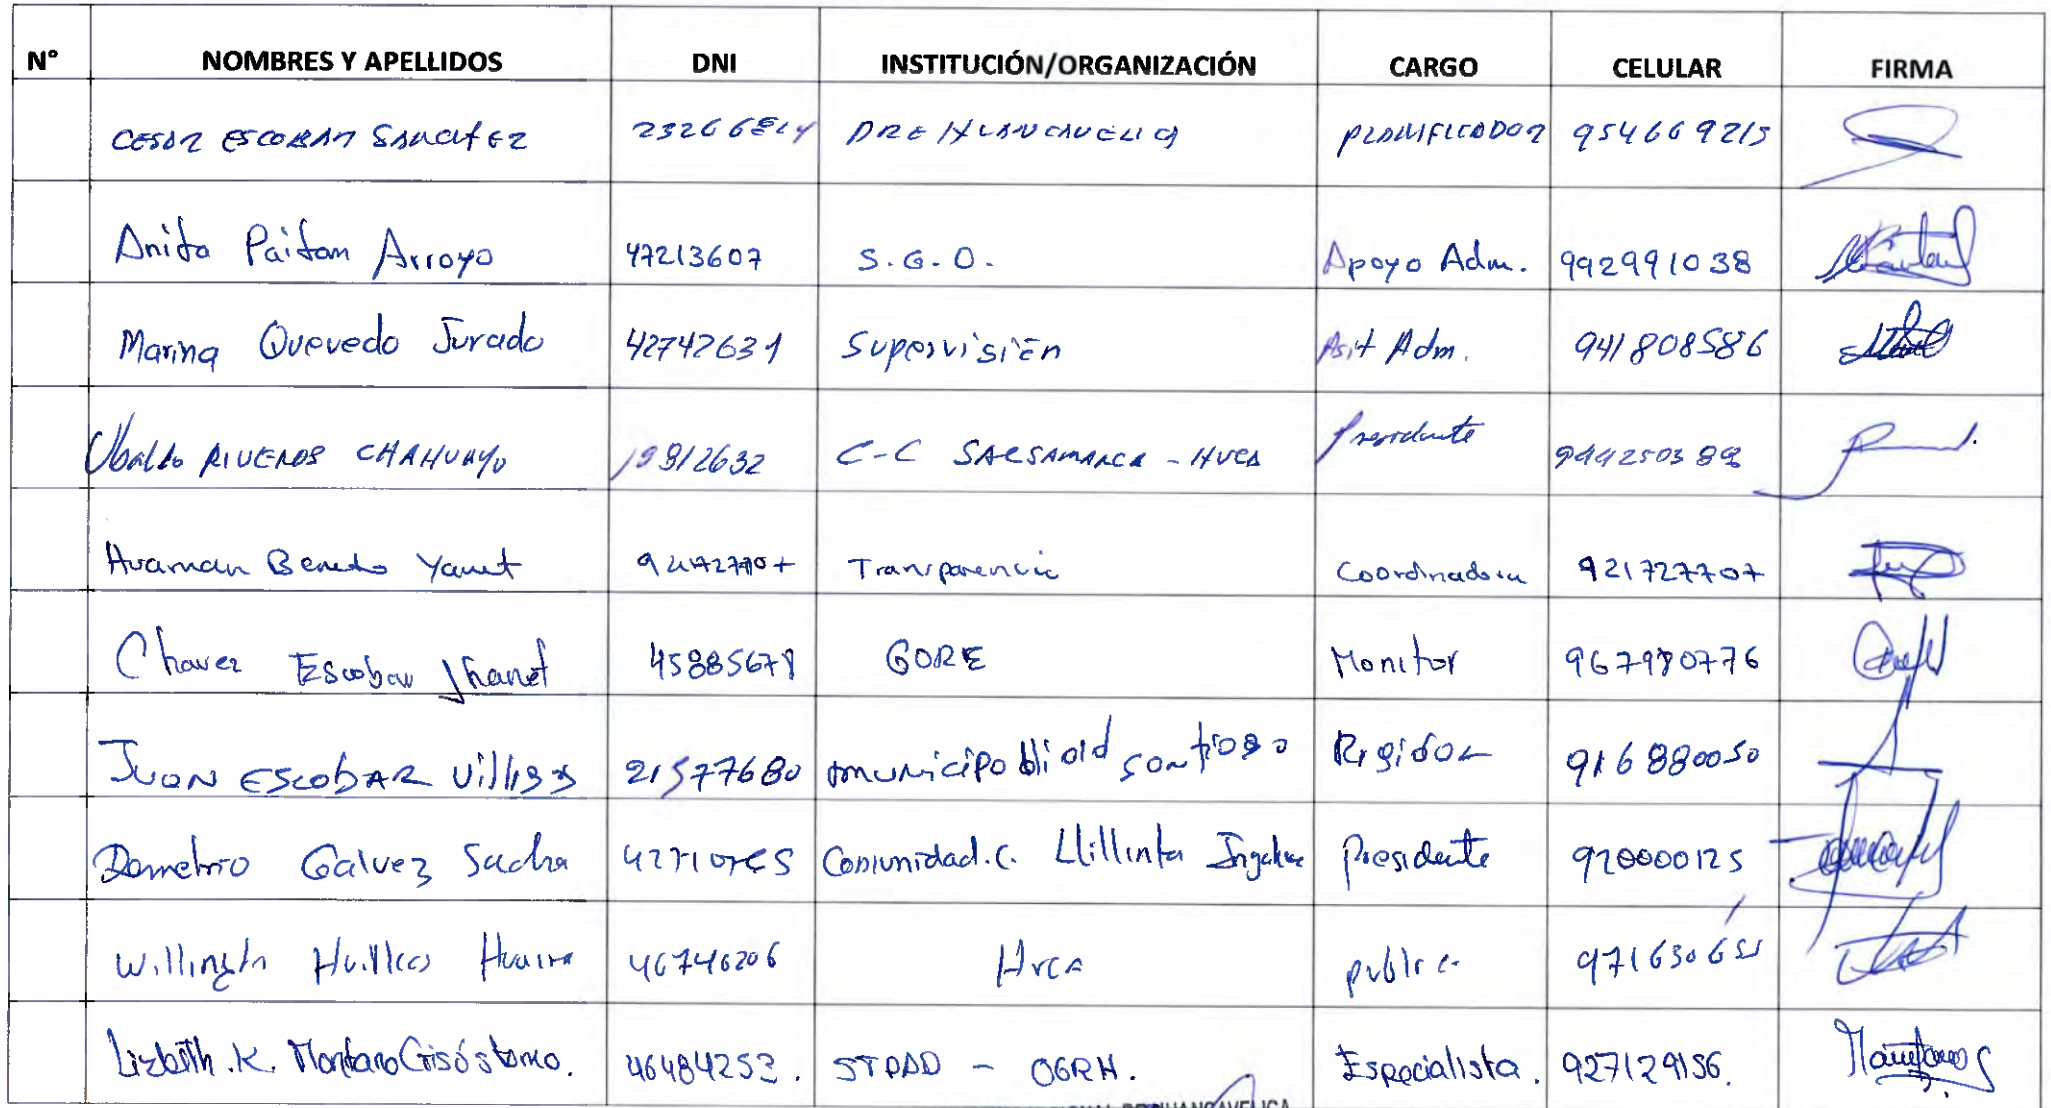 N° NOMBRES Y APELLIDOS DNI INSTITUCIÓN/ORGANIZACIÓN CARGO CELULAR FIRMA
CESAR ESCOBAR SANCHEZ DRE HUANCAVELICA PLANIFICADOR 954669215
Anita Paitan Arroyo 47213607 S.G.O. Apoyo Adm. 992991038
Marina Quevedo Jurado 42742631 Supervisión Asit Adm. 941808586
Ubaldo RIVEROS CHAHUAYO 19812632 C-C SACSAMARCA - HVCA Presidente
Huaman Benito Yanet Transparencia Coordinadora 921727707
Chavez Escobar Jhanet GORE Monitor
JUAN ESCOBAR 21577680 municipalidad santiago Regidor 916880050
Demetrio Galvez Sacha Comunidad.C. Llillinta Presidente 920000125
Huillcas 46746206 Hvca
Lizbeth.K. Montano Crisóstomo. STPAD - OGRH. Especialista. 927129156.